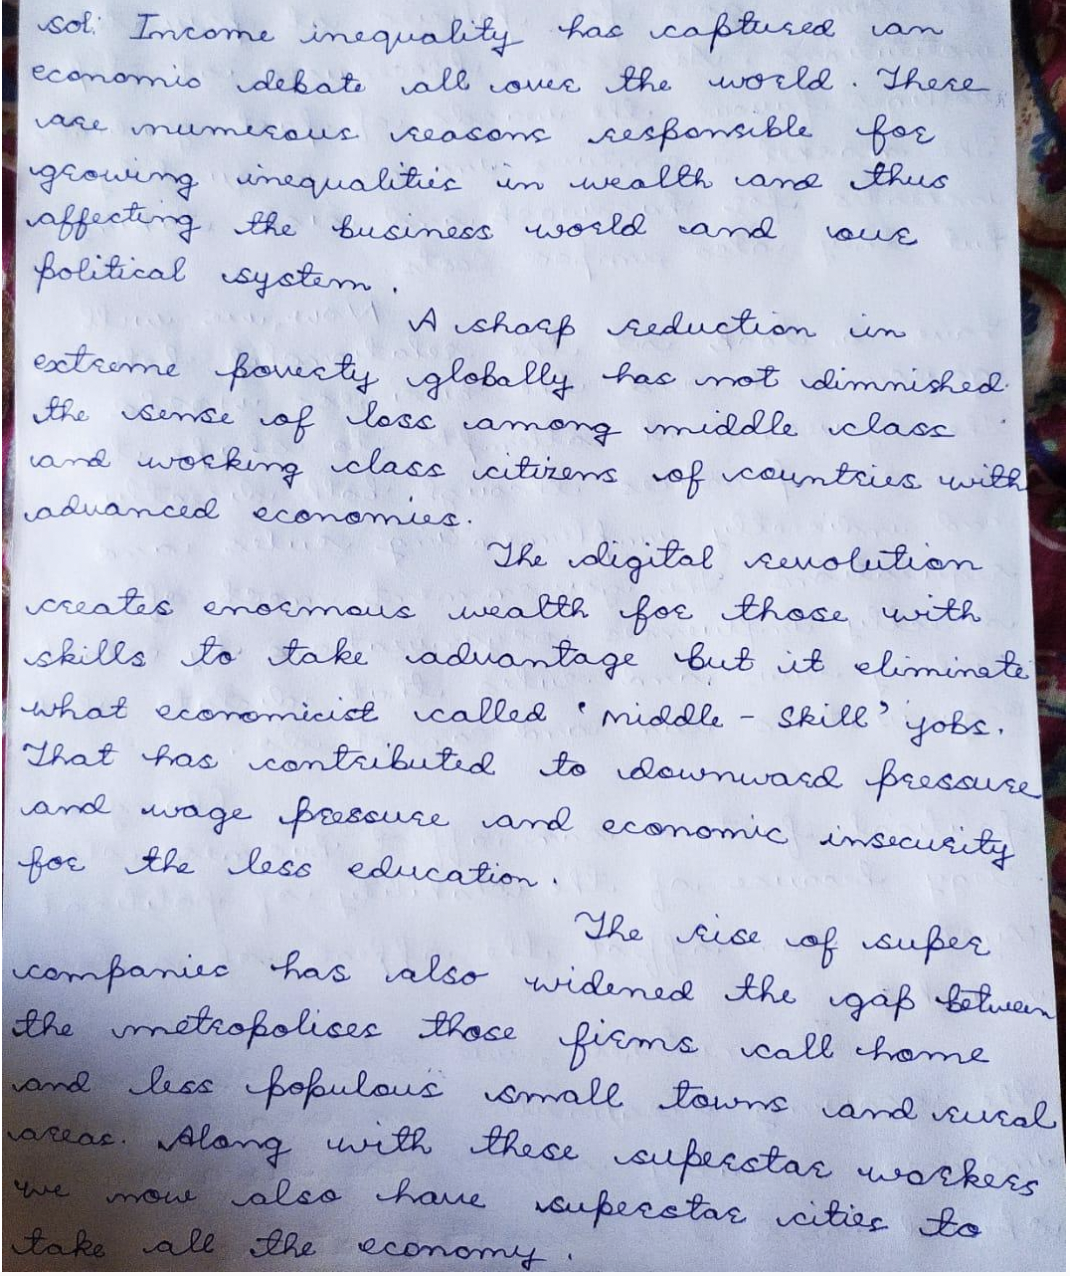 sol: Income inequality has captured an
economic debate all over the world. There
are numerous reasons responsible for
growing inequalities in wealth and thus
affecting the business world and our
political system.
A sharp reduction in
extreme poverty globally has not dimnished
the sense of loss among middle class
and working class citizens of countries with
advanced economies.
The digital revolution
creates enormous wealth for those with
skills to take advantage but it eliminate
what economicist called 'middle - skill' jobs.
That has contributed to downward pressure
and wage pressure and economic insecurity
for the less education.
The rise of super
companies has also widened the gap between
the metropolises those firms call home
and less populous small towns and rural
areas. Along with these superstar workers
we now also have superstar cities to
take all the economy.